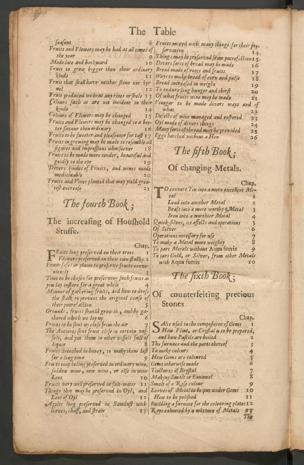 The Table
seasons 6
Fruits and Flowers may be had at all times of the year 9
Made late and backward 10
Fruit to grow bigger than their ordinary kinds 11
Fruit that shall have neither stone nor kernel 12
Fruit produced without any rines or shels 13
Colours such as are not incident to their kinds 14
Colours of Flowers may be changed 15
Fruits and Flowers may be changed to a better savour then ordinary 16
Fruits to be sweeter and pleasanter for tast 17
Fruits in growing may be made to resemble all figures and impressions whatsoever 18
Fruits to be made more tender, beautiful and goodly to the eye 19
Divers kindes of Fruits, and wines made medicinable 20
Fruits and Vines planted that may yield greatest encrease 21
The fourth Book;
The increasing of Houshold Stuffe.
Chap.
Fruits long preserved on their trees 1
Flowers preserved on their own stalks 2
Time to be chosen for preserving such fruits as you lay in store for a great while 4
Manner of gathering fruits, and how to dress the stalk to prevent the original cause of their putrefaction 5
Fruits to be shut up close from the air 7
Fruits drenched in honey, to make them last for a long time 9
Fruits very well preserved in salt-water 11
Things that may be preserved in Oyl, and Lees of Oyl 12
Apples long preserved in Sawdust with leaves, chaff, and straw 13
Fruits mixed with many things for their preservation 14
Things may be preserved from putrefaction 15
Divers sorts of bread may be made 16
Bread made of roots and fruits 17
Ways to make bread of corn and pulse 18
Bread increased in weight 19
To endure long hunger and thirst 20
Of what fruits wine may be made 21
Vinegar to be made divers ways and of what 22
Defects of wine managed and restored 23
Oyl made of divers things 24
Many sorts of thread may be provided 25
Eggs hatched without a Hen 26
The fifth Book;
Of changing Metals.
Chap.
To convert Tin into a more excellent Metal 1
Lead into another Metal 2
Brass into a more worthy Metal 3
Iron into a worthier Metal 4
Quick-silver, its effects and operations 5
Of Silver 6
Operations necessary for use 7
To make a Metal more weighty 8
To part Metals without Aqua fortis 9
To part Gold, or Silver, from other Metals with Aqua fortis 10
The sixth Book;
Of counterfeiting precious Stones
Chap.
Of certain Salts used in the composition of Gems 1
How Flint, or Crystal is to be prepared, and how Pastils are boiled 2
The furnace and the parts thereof 3
To make colours 4
How Gems are coloured 5
Gems otherwise made 6
Tinctures of Crystal 7
Making Smalt or Ennamel 8
Smalt of a Rose colour 9
Leaves of Metal to be put under Gems 10
How to be polished 11
Building a furnace for the colouring plates 12
Rays coloured by a mixture of Metals 13
The